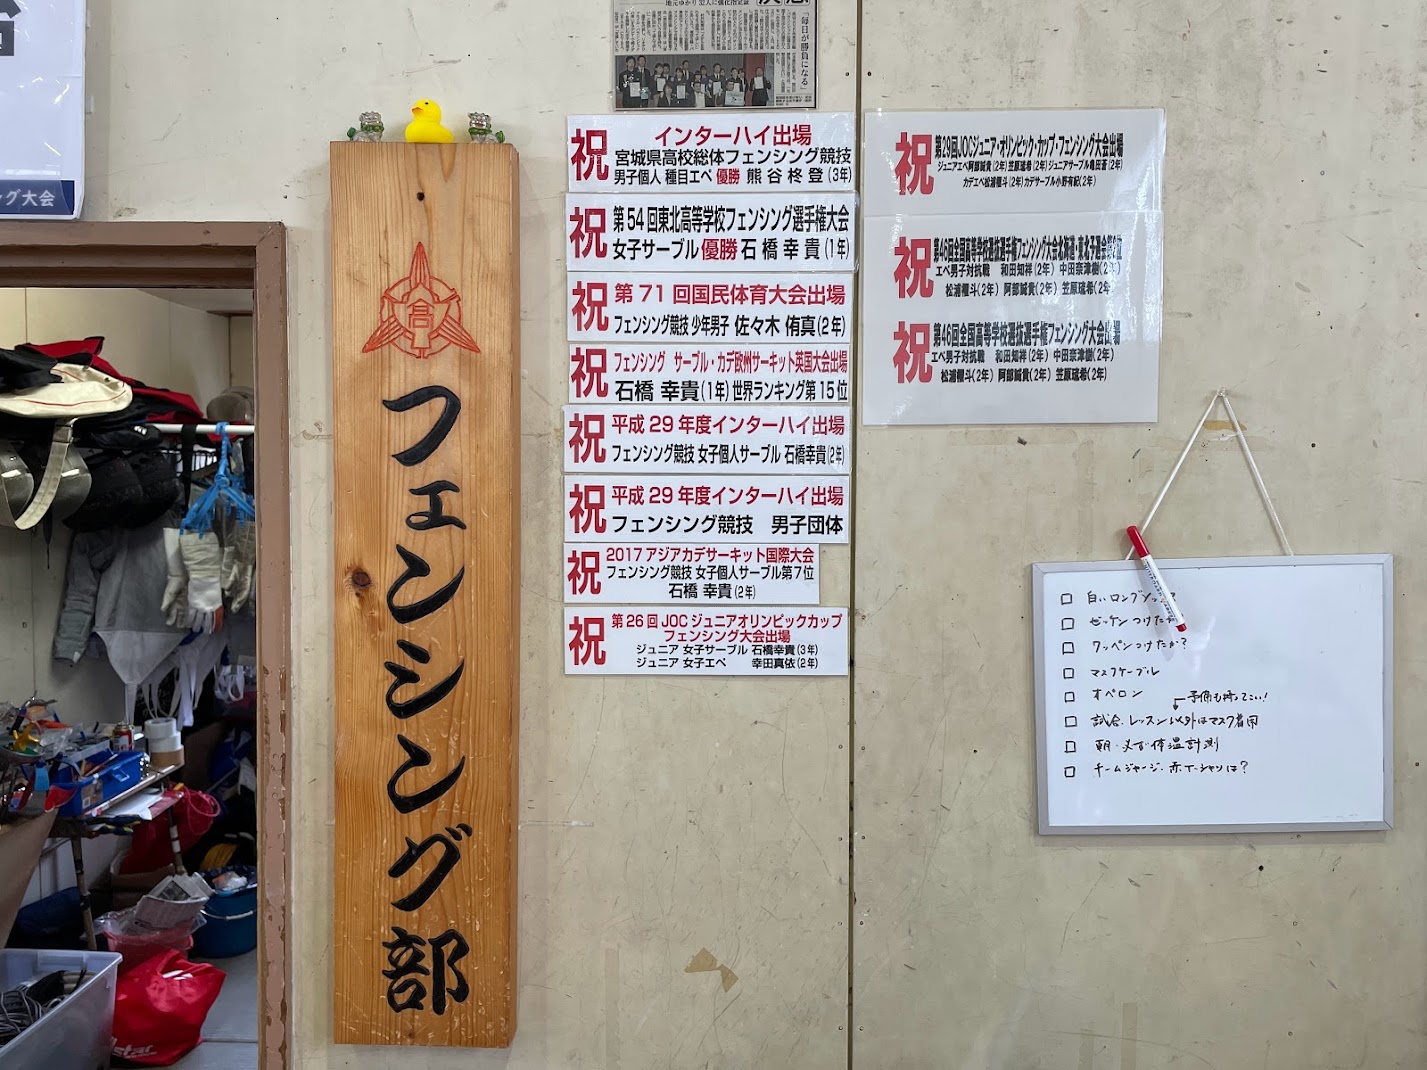 グ大会
高
フェンシング部
地元ゆかり
「毎日が勝負になる」
祝
インターハイ出場
宮城県高校総体フェンシング競技
男子個人 種目エペ 優勝 熊谷柊登(3年)
祝
第54回東北高等学校フェンシング選手権大会
女子サーブル 優勝 石橋幸貴(1年)
祝
第71回国民体育大会出場
フェンシング競技 少年男子 佐々木侑真(2年)
祝
フェンシング サーブル・カデ欧州サーキット英国大会出場
石橋 幸貴(1年)世界ランキング第15位
祝
平成29年度インターハイ出場
フェンシング競技 女子個人サーブル 石橋幸貴(2年)
祝
平成29年度インターハイ出場
フェンシング競技 男子団体
祝
2017アジアカデサーキット国際大会
フェンシング競技 女子個人サーブル第7位
石橋 幸貴(2年)
祝
第26回JOCジュニアオリンピックカップ
フェンシング大会出場
ジュニア 女子サーブル 石橋幸貴(3年)
ジュニア 女子エペ 幸田真依(2年)
祝
第29回JOCジュニア・オリンピック・カップ・フェンシング大会出場
ジュニアエペ阿部誠貴(2年)笠原琉希(2年)ジュニアサーブル亀田蒼(2年)
カデエペ松浦櫂斗(2年)カデサーブル小野有紀(2年)
祝
第46回全国高等学校選抜選手権フェンシング大会北海道・東北予選会第2位
エペ男子対抗戦 和田知祥(2年) 中田奈津樹(2年)
松浦櫂斗(2年) 阿部誠貴(2年) 笠原琉希(2年)
祝
第46回全国高等学校選抜選手権フェンシング大会出場
エペ男子対抗戦 和田知祥(2年) 中田奈津樹(2年)
松浦櫂斗(2年) 阿部誠貴(2年) 笠原琉希(2年)
□ 白いロングソックス
□ ゼッケンつけたか
□ ワッペンつけたか?
□ マスクケーブル
□ オペロン
予備も持ってこい!
□ 試合、レッスン以外はマスク着用
□ 朝、必ず体温計測
□ チームジャージ、赤Tシャツは?
star